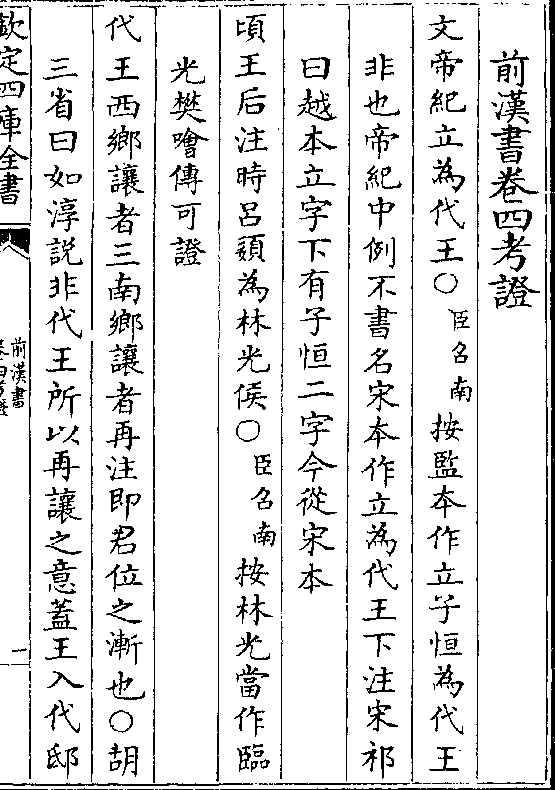 前漢書卷四考證
文帝紀立為代王〇臣召南按監本作立子恒為代王
非也帝紀中例不書名宋本作立為代王下注宋祁
曰越本立字下有子恒二字今從宋本
頃王后注時呂頦為林光侯〇臣召南按林光當作臨
光樊噲傳可證
代王西鄉讓者三南鄉讓者再注即君位之漸也〇胡
三省曰如淳說非代王所以再讓之意蓋王入代邸
欽定四庫全書
前漢書
卷四考證
一